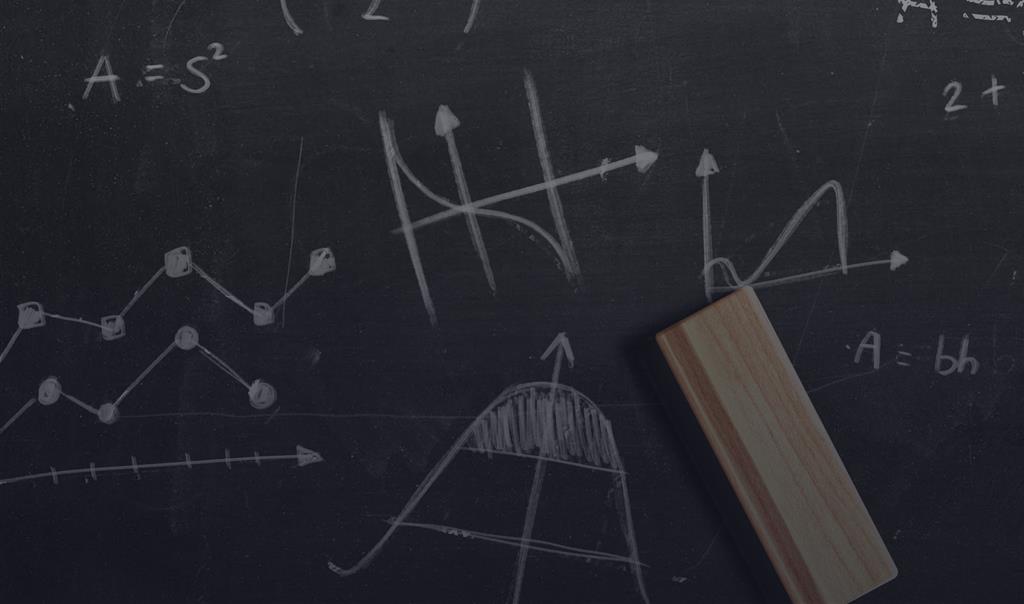 A = S²
2 +
A = bh